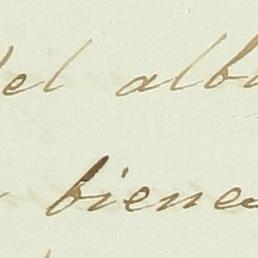 del alba
bienes